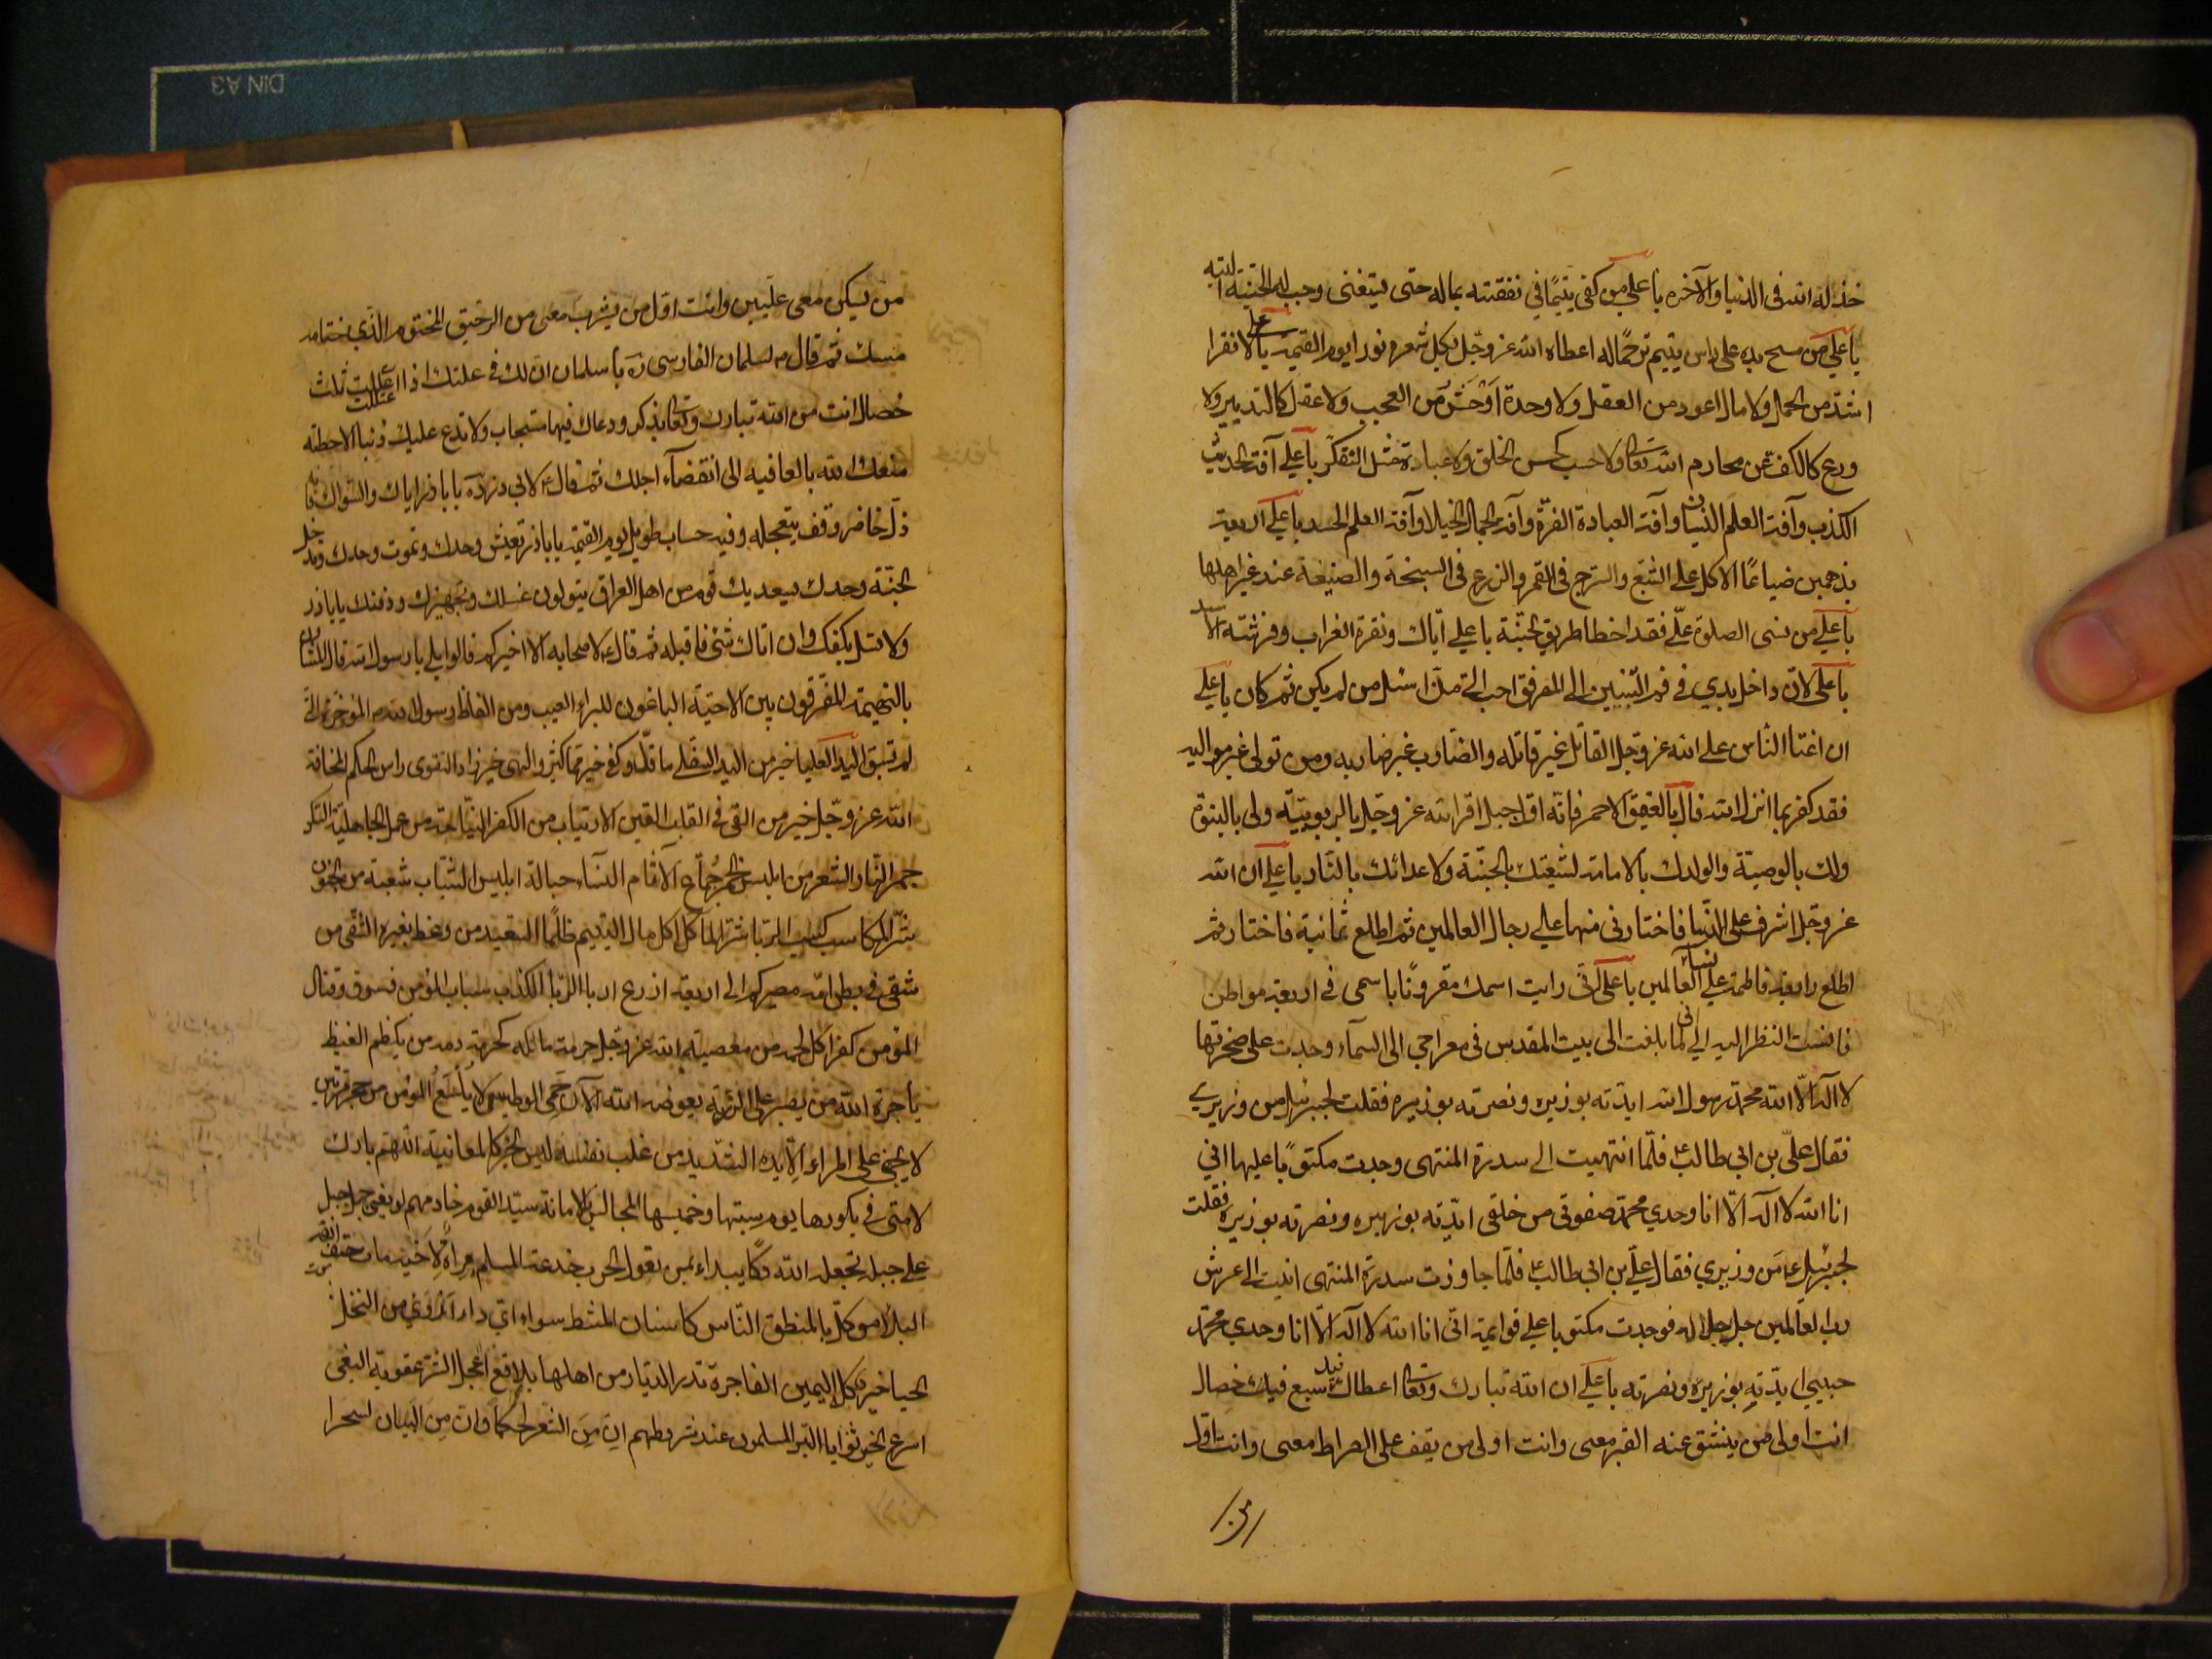 خذله الله فى الدنيا والآخره يا على من كفى يتيمًا في نفقته بماله حتى يستغنى وجب له الجنة البته
يا على من مسح يده على راس يتيم ترحمًا له اعطاه الله عز وجل بكل شعره نورا يوم القيمة يا على لا فقرا
اشد من الجهل ولا مال اعود من العقل ولا وحدة اوحش من العجب ولا عقل كالتدبير ولا
ورع كالكف عن محارم الله تعالى ولا حسب كحسن الخلق ولا عبادة مثل التفكر يا على آفة الحديث
الكذب وآفة العلم النسيان وآفة العبادة الفترة وآفة الجمال الخيلا وآفة العلم الحسد يا على اربعة
يذهبن ضياعًا الاكل على الشبع والسرج فى القمر والزرع فى السبخة والصنيعة عند غير اهلها
يا على من نسى الصلوة علّى فقد اخطا طريق الجنّة يا على اياك ونقرة الغراب وفرشة الاسد
يا على لان داخل يدي في فم التنين الى المرفق احب الى من ان اسئل من لم يكن ثم كان يا على
ان اعتا الناس على الله عز وجل القاتل غير قاتله والضارب غير ضاربه ومن تولى غير مواليه
فقد كفر بما انزل الله قال بالعقيق الاحمر فانّه اول جبل اقر لله عز وجل بالربوبيّة ولى بالنبوة
ولك بالوصيّة ولولدك بالامامة لشيعتك بالجنّة ولاعدائك بالنّار يا على ان الله
عز وجل اشرف على الدنيا فاختارنى منها على رجال العالمين ثم اطلع ثمانية فاختار ثم
اطلع رابعة فاطمة على نساء العالمين يا على انّى رايت اسمك مقرونًا باسمى في اربعة مواطن
فانست النظر اليه انى لما بلغت الى بيت المقدس فى معراجي الى السمآء وجدت على صخرتها
لا اله الّا الله محمد رسول الله ايدته بوزيره ونصرته بوزيره فقلت لجبرئيل من وزيري
فقال علّى بن ابي طالبؑ فلمّا انتهيت الى سدرة المنتهى وجدت مكتوبًا عليها انى
انا الله لا اله الّا انا وحدي محمد صفوتى من خلقى ايّدته بوزيره ونصرته بوزيره فقلت
لجبرئيلؑ من وزيري فقال علّى بن ابي طالبؑ فلمّا جاوزت سدرة المنتهى انتهيت الى عرش
رب العالمين جل جلاله فوجدت مكتوبا على قوايمه انّى انا الله لا اله الّا انا وحدي محمد
حبيبي ايدّته بوزيره ونصرته يا على ان الله تبارك وتعالى اعطانى فيك سبع خصال
انت اول من ينشق عنه القبر معى وانت اول من يقف على الصراط معى وانت اول
من يسكن معى عليين وانت اوّل من يشرب معى من الرحيق المختوم الّذي ختامه
مسك ثم قال لسلمان الفارسى ره يا سلمان ان لك في علتك اذا اعتللت ثلث
خصال انت من الله تبارك وتعالى بذكر ودعاك فيها مستجاب ولا تدع عليك ذنبا الا حطته
متعك الله بالعافيه الى انقضآء اجلك ثم قالؑ لابي ذر ره يا باذر اياك والسؤال فانه
ذلّ حاضر وفقر يتعجله وفيه حساب طويل يوم القيمه يا باذر تعيش وحدك وتموت وحدك وتدخل
الجنّة وحدك يسعد بك قوم من اهل العراق يتولون غسلك وتجهيزك ودفنك يا باذر
ولا تسئل بكفك وان اتاك شئ فاقبله ثم قالؑ لاصحابه الا اخبركم قالوا بلى يا رسول الله قال المشاؤن
بالنميمة المفّرقون بين الاحبّة الباغون للبراء العيب ومن الفاظ رسول الله الموجزة التى
لم تسبق اليد العليا خير من اليد السفلى ما قلّ وكفى خير مما كثر والهى خير زاد التقوى راس الحكم المخافة
الله عز وجل خير من القى فى القلب اليقين الارتياب من الكفر النيّاحة من عمل الجاهليّة السكر
جمر النّار والشعر من ابليس الخمر جُمّاع الآثام النسآء حبالة ابليس الشّباب شعبة من الجنون
شرّ المكاسب كسب الربا شر المآكل اكل مال اليتيم ظلمًا السّعيد من وعظ بغيره الشّقى من
شقى في بطن امّه مصيركم الى اربعة اذرع اربا الرّبا الكذب سباب المؤمن فسوق وقتال
المؤمن كفر اكل لحمه من معصية الله عز وجل حرمة ماله كحرمة دمه من يكظم الغيظ
يأجره الله من يصبر على الرزية يعوضه الله الآن حَمِى الوطيس لا يُلْسَعُ المؤمن من حجر مرّتين
لا يجنى على المراء الّا يده الشّديد من غلب نفسه ليس الخبر كالمعاينة اللهم بارك
لامتى في بكورها يوم سبتها وخميسها المجالس بالامانة سيّد القوم خادمهم لو بغى جبل
على جبل لجعله الله دكًا يبداء بمن تعول الحرب خدعة المسلم مرآة لاخيه مات حتف انفه
البلاء موكّل بالمنطق النّاس كاسنان المشط سواء اىّ داء ادوى من البخل
الحيا خير كله اليمين الفاجرة تذر الديار من اهلها بلاقع اعجل الشّر عقوبة البغى
اسرع الخير ثوابا البّر المسلمون عند شروطهم انّ مِن الشعر لحكمًا وانّ مِن البيان لسحرا